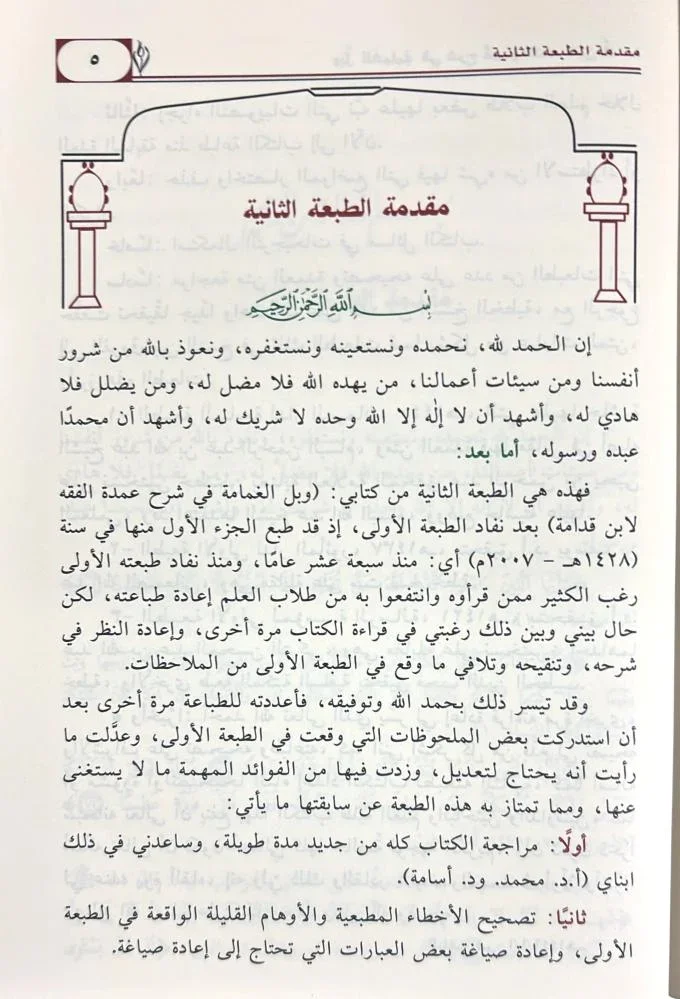 مقدمة الطبعة الثانية
٥
مقدمة الطبعة الثانية
بسم الله الرحمن الرحيم
إن الحمد لله، نحمده ونستعينه ونستغفره، ونعوذ بالله من شرور
أنفسنا ومن سيئات أعمالنا، من يهده الله فلا مضل له، ومن يضلل فلا
هادي له، وأشهد أن لا إلٰه إلا الله وحده لا شريك له، وأشهد أن محمدًا
عبده ورسوله، أما بعد:
فهذه هي الطبعة الثانية من كتابي: (وبل الغمامة في شرح عمدة الفقه
لابن قدامة) بعد نفاد الطبعة الأولى، إذ قد طبع الجزء الأول منها في سنة
(١٤٢٨هـ - ٢٠٠٧م) أي: منذ سبعة عشر عامًا، ومنذ نفاد طبعته الأولى
رغب الكثير ممن قرأوه وانتفعوا به من طلاب العلم إعادة طباعته، لكن
حال بيني وبين ذلك رغبتي في قراءة الكتاب مرة أخرى، وإعادة النظر في
شرحه، وتنقيحه وتلافي ما وقع في الطبعة الأولى من الملاحظات.
وقد تيسر ذلك بحمد الله وتوفيقه، فأعددته للطباعة مرة أخرى بعد
أن استدركت بعض الملحوظات التي وقعت في الطبعة الأولى، وعدَّلت ما
رأيت أنه يحتاج لتعديل، وزدت فيها من الفوائد المهمة ما لا يستغنى
عنها، ومما تمتاز به هذه الطبعة عن سابقتها ما يأتي:
أولًا: مراجعة الكتاب كله من جديد مدة طويلة، وساعدني في ذلك
ابناي (أ.د. محمد. ود. أسامة).
ثانيًا: تصحيح الأخطاء المطبعية والأوهام القليلة الواقعة في الطبعة
الأولى، وإعادة صياغة بعض العبارات التي تحتاج إلى إعادة صياغة.